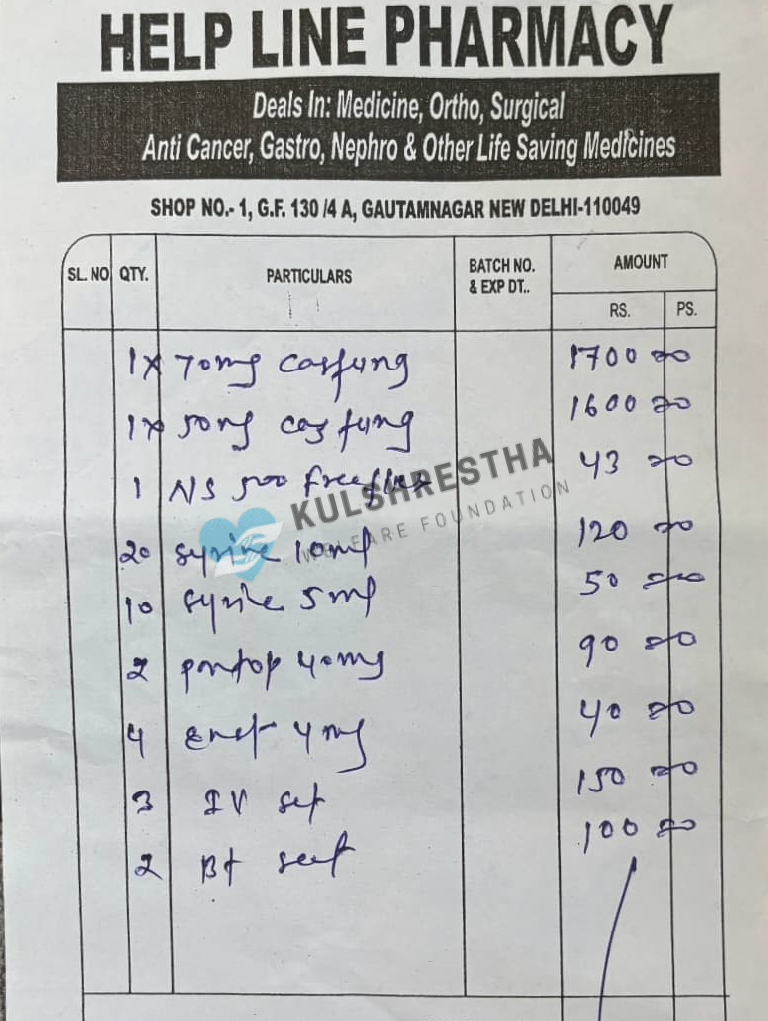 HELP LINE PHARMACY
Deals In: Medicine, Ortho, Surgical
Anti Cancer, Gastro, Nephro & Other Life Saving Medicines
SHOP NO.- 1, G.F. 130 /4 A, GAUTAMNAGAR NEW DELHI-110049
SL. NO QTY. PARTICULARS BATCH NO. & EXP DT.. AMOUNT
RS. PS.
1x 70mg casfung 1700 00
1x 50mg casfung 1600 00
1 NS 500 43 00
KULSHRESTHA
WELFARE FOUNDATION
20 syrine 10ml 120 00
10 syrine 5ml 50 00
2 pantop 40mg 90 00
4 4mg 40 00
3 IV set 150 00
2 BT set 100 00